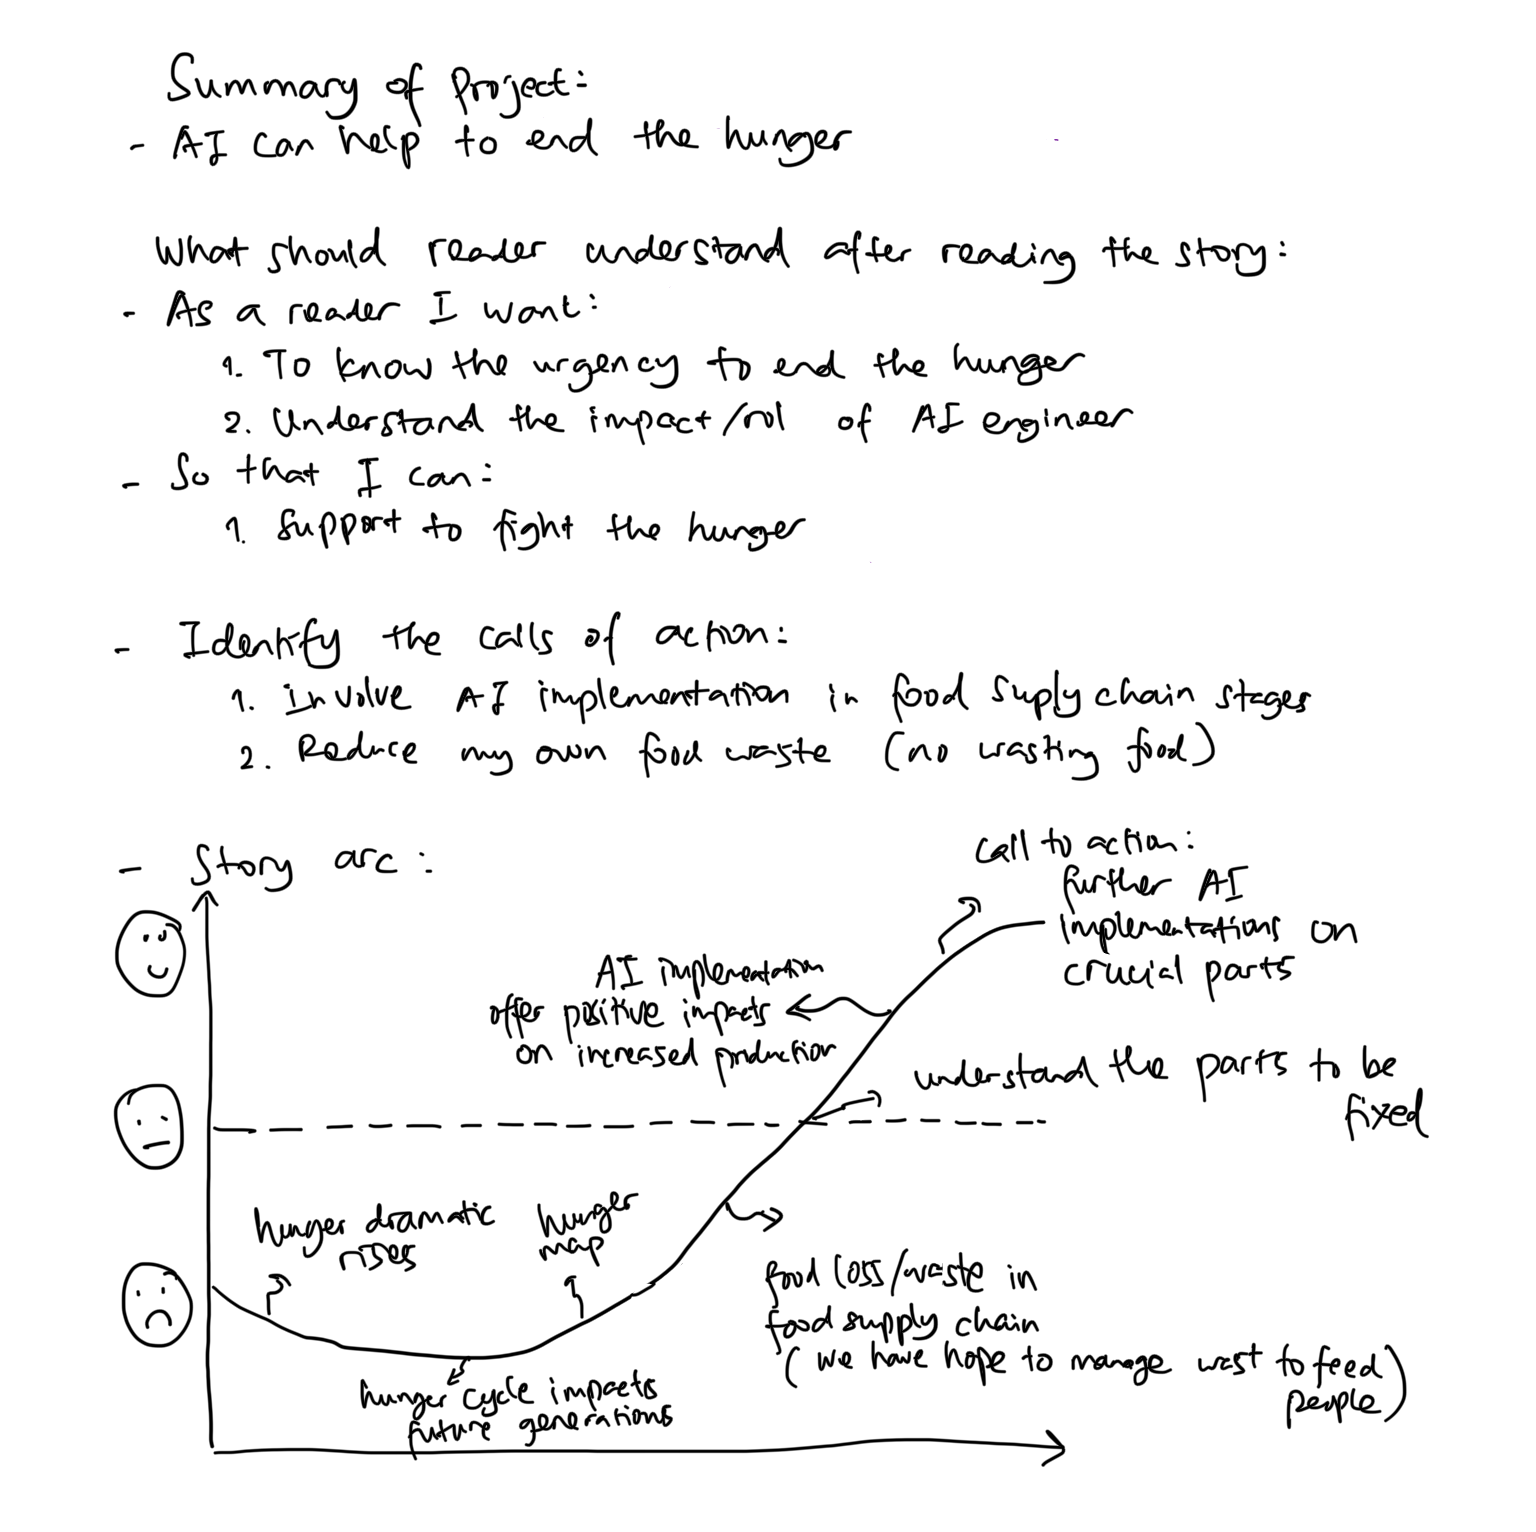 Summary of Project:
- AI can help to end the hunger
What should reader understand after reading the story:
- As a reader I want:
1. To know the urgency to end the hunger
2. Understand the impact/rol of AI engineer
- So that I can:
1. Support to fight the hunger
- Identify the calls of action:
1. involve AI implementation in food suply chain stages
2. Reduce my own food waste (no wasting food)
- Story arc:
call to action:
further AI
implementations on
crucial parts
AI implementation
offer positive impacts
on increased production
understand the parts to be
fixed
hunger dramatic
rises
hunger
map
food loss/waste in
food supply chain
(we have hope to manage wast to feed
people)
hunger cycle impacts
future generations